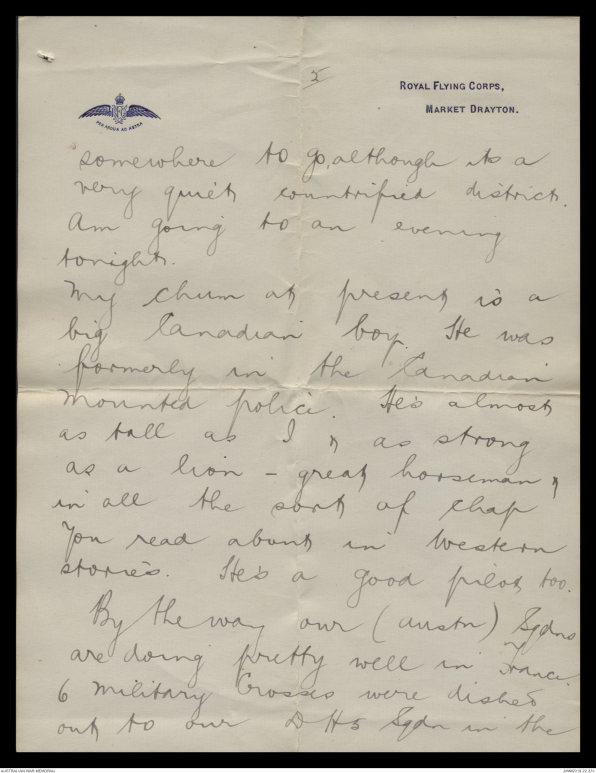 5
ROYAL FLYING CORPS,
MARKET DRAYTON.
RFC
PER ARDUA AD ASTRA
somewhere to go, although its a
very quiet countrified district.
Am going to an evening
tonight.
My chum at present is a
big Canadian boy. He was
formerly in the Canadian
mounted police. He's almost
as tall as I & as strong
as a lion – great horseman &
in all the sort of chap
you read about in Western
stories. He's a good pilot too.
By the way our (Austn) Sqdns
are doing pretty well in France.
6 Military Crosses were dished
out to our DH5 Sqdn in the
AUSTRALIAN WAR MEMORIAL